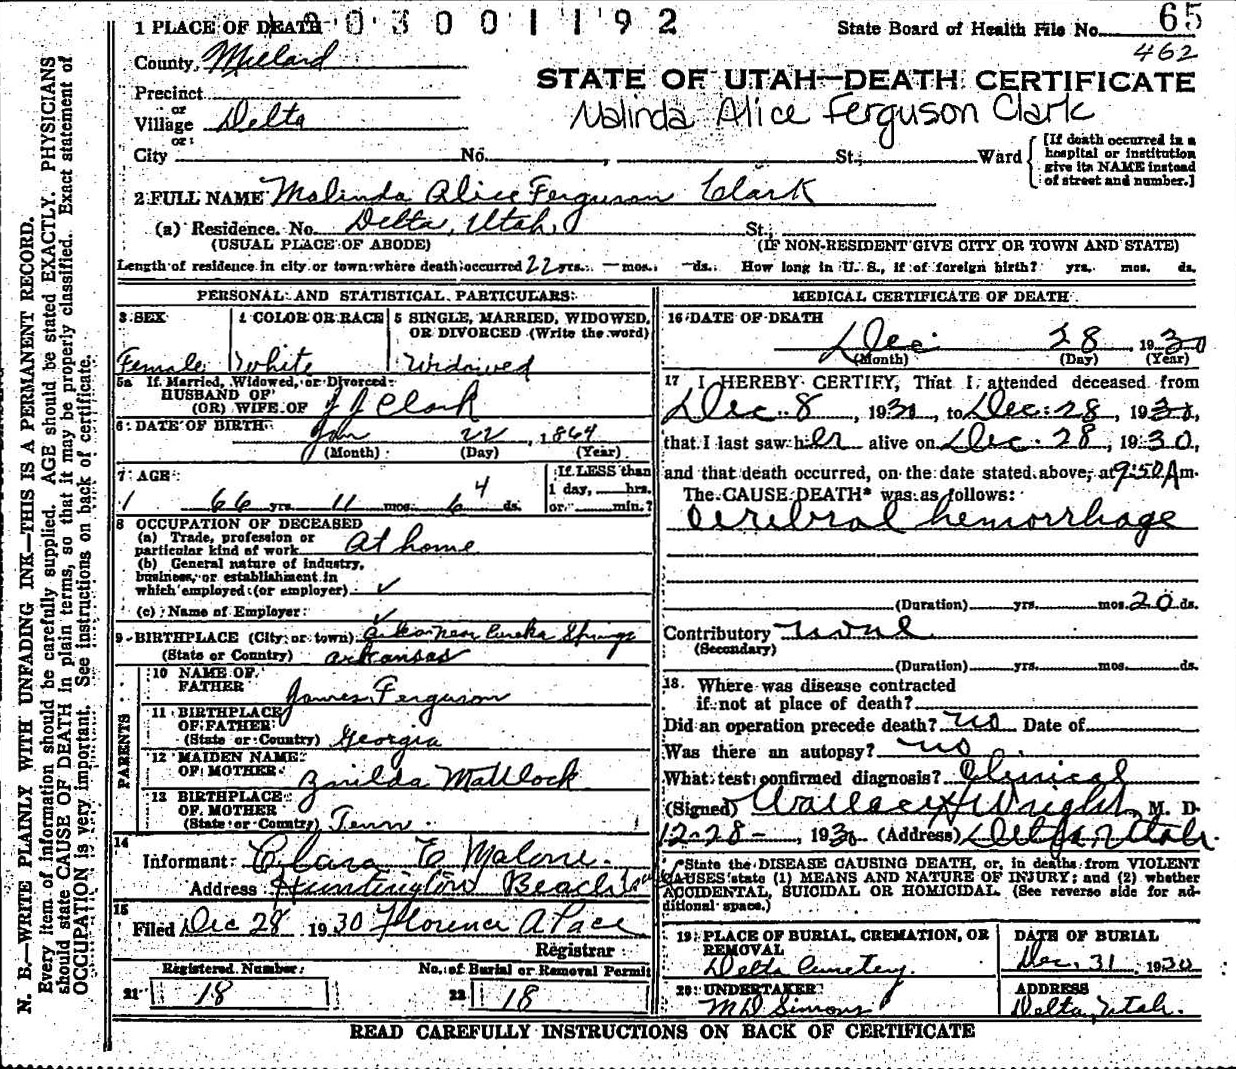 1 PLACE OF DEATH 0 0 3 0 0 1 1 9 2 State Board of Health File No. 65
462
County Millard
STATE OF UTAH—DEATH CERTIFICATE
Precinct
or
Village Delta
Malinda Alice Ferguson Clark
or
City No. , St.; Ward
[If death occurred in a hospital or institution give its NAME instead of street and number.]
2 FULL NAME Malinda Alice Ferguson Clark
(a) Residence. No. Delta, Utah, St.;
(USUAL PLACE OF ABODE) (IF NON-RESIDENT GIVE CITY OR TOWN AND STATE)
Length of residence in city or town where death occurred 22 yrs. — mos. — ds. How long in U. S., if of foreign birth? yrs. mos. ds.
PERSONAL AND STATISTICAL PARTICULARS
3 SEX 4 COLOR OR RACE 5 SINGLE, MARRIED, WIDOWED,
OR DIVORCED (Write the word)
Female White Widowed
5a If Married, Widowed, or Divorced
HUSBAND OF
(OR) WIFE OF J J Clark
6 DATE OF BIRTH Jan 22, 1864
(Month) (Day) (Year)
7 AGE If LESS than
4 1 day, hrs.
1 66 yrs. 11 mos. 6 ds. or min.?
8 OCCUPATION OF DECEASED
(a) Trade, profession or
particular kind of work At home
(b) General nature of industry,
business, or establishment in
which employed (or employer) ✓
(c) Name of Employer ✓
9 BIRTHPLACE (City or town) near Eureka Springs
(State or Country) Arkansas
PARENTS
10 NAME OF
FATHER James Ferguson
11 BIRTHPLACE
OF FATHER
(State or Country) Georgia
12 MAIDEN NAME
OF MOTHER Matlock
13 BIRTHPLACE
OF MOTHER
(State or Country) Tenn.
14
Informant Clara E Malone.
Address Huntington Beach
15
Filed Dec 28 1930 Florence A Pace
Registrar
Registered Number No. of Burial or Removal Permit
21 18 22 18
MEDICAL CERTIFICATE OF DEATH
16 DATE OF DEATH
Dec. 28 1930
(Month) (Day) (Year)
17 I HEREBY CERTIFY, That I attended deceased from
Dec. 8, 1930, to Dec. 28, 1930,
that I last saw her alive on Dec. 28, 1930,
and that death occurred, on the date stated above, at 9:50 Am.
The CAUSE DEATH* was as follows:
Cerebral hemorrhage
(Duration) yrs. mos. 20 ds.
Contributory None
(Secondary)
(Duration) yrs. mos. ds.
18. Where was disease contracted
if not at place of death?
Did an operation precede death? no Date of
Was there an autopsy? no
What test confirmed diagnosis? Clinical
(Signed) Wallace H Wright, M. D.
12-28-, 1930 (Address) Delta, Utah.
*State the DISEASE CAUSING DEATH, or, in deaths from VIOLENT
CAUSES state (1) MEANS AND NATURE OF INJURY; and (2) whether
ACCIDENTAL, SUICIDAL OR HOMICIDAL. (See reverse side for ad-
ditional space.)
19 PLACE OF BURIAL, CREMATION, OR DATE OF BURIAL
REMOVAL
Delta Cemetery. Dec. 31, 1930
20 UNDERTAKER ADDRESS
M D Simons Delta, Utah.
READ CAREFULLY INSTRUCTIONS ON BACK OF CERTIFICATE
N. B.—WRITE PLAINLY WITH UNFADING INK—THIS IS A PERMANENT RECORD.
Every item of information should be carefully supplied. AGE should be stated EXACTLY. PHYSICIANS
should state CAUSE OF DEATH in plain terms, so that it may be properly classified. Exact statement of
OCCUPATION is very important. See instructions on back of certificate.